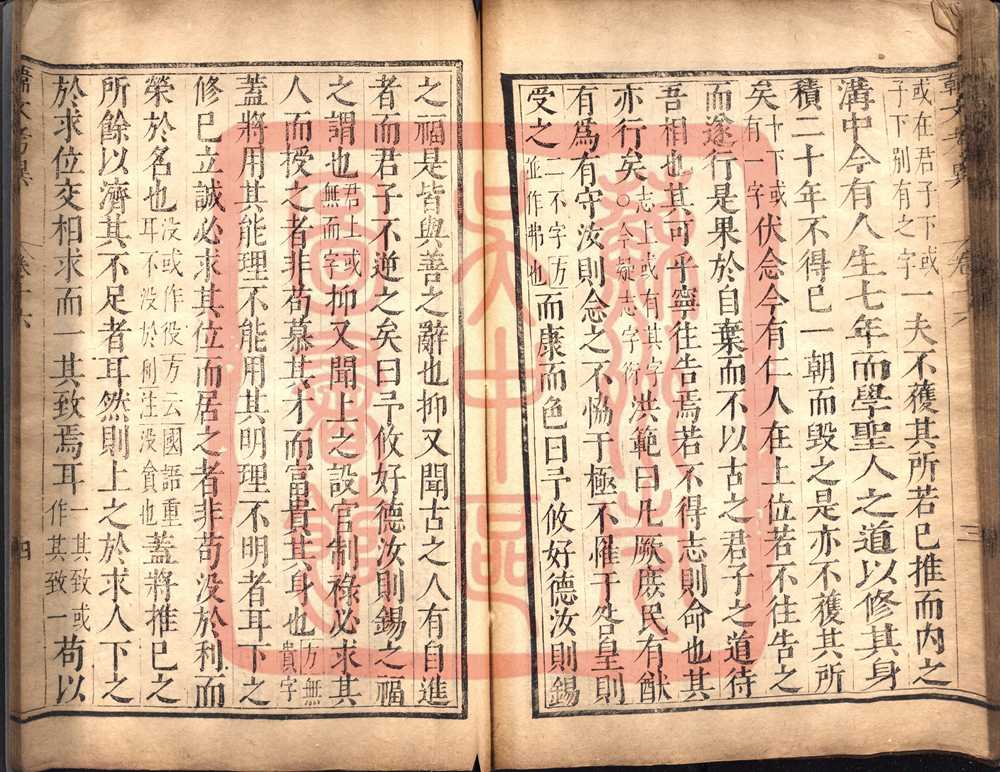 或在君子下或子下別有之字一夫不獲其所若已推而內之
溝中今有人生七年而學聖人之道以修其身
積二十年不得已一朝而毀之是亦不獲其所
矣十下或有一字伏念今有仁人在上位若不往告之
而遂行是果於自棄而不以古之君子之道待
吾相也其可乎寧往告焉若不得志則命也其
亦行矣志上或有其字○今疑志字衍洪範曰凡厥庶民有猷
有為有守汝則念之不恊于極不罹于咎皇則
受之二不字方並作弗也而康而色曰予攸好德汝則錫
之福是皆與善之辭也抑又聞古之人有自進
者而君子不逆之矣曰予攸好德汝則錫之福
之謂也君上或無而字抑又聞上之設官制祿必求其
人而授之者非苟慕其才而富貴其身也方無貴字
蓋將用其能理不能用其明理不明者耳下之
修已立誠必求其位而居之者非苟没於利而
榮於名也没或作役方云國語重耳不没於利注没貪也蓋將推已之
所餘以濟其不足者耳然則上之於求人下之
於求位交相求而一其致焉耳一其致或作其致一苟以
韓文考異
四
三